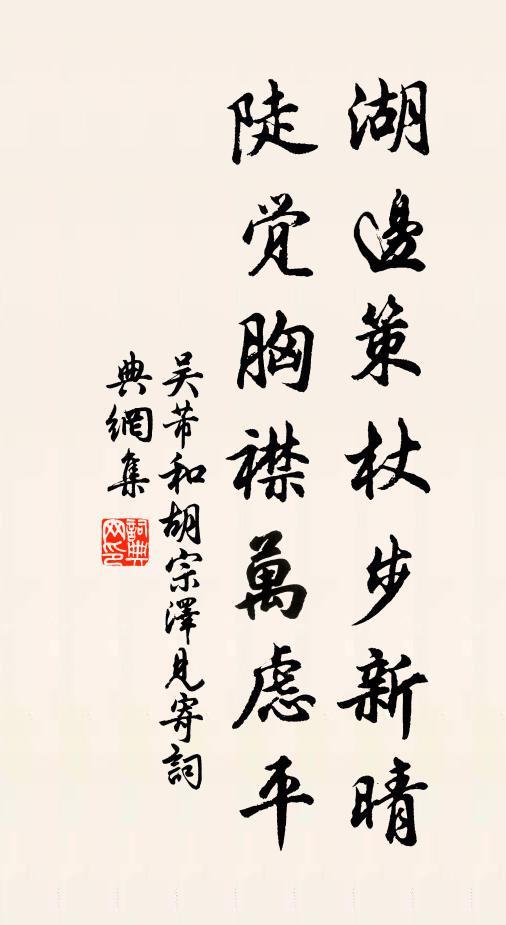 湖邊策杖步新晴
陡覚胸襟萬慮平
吴芾和胡宗澤見寄詞
典網集
詞典
网印